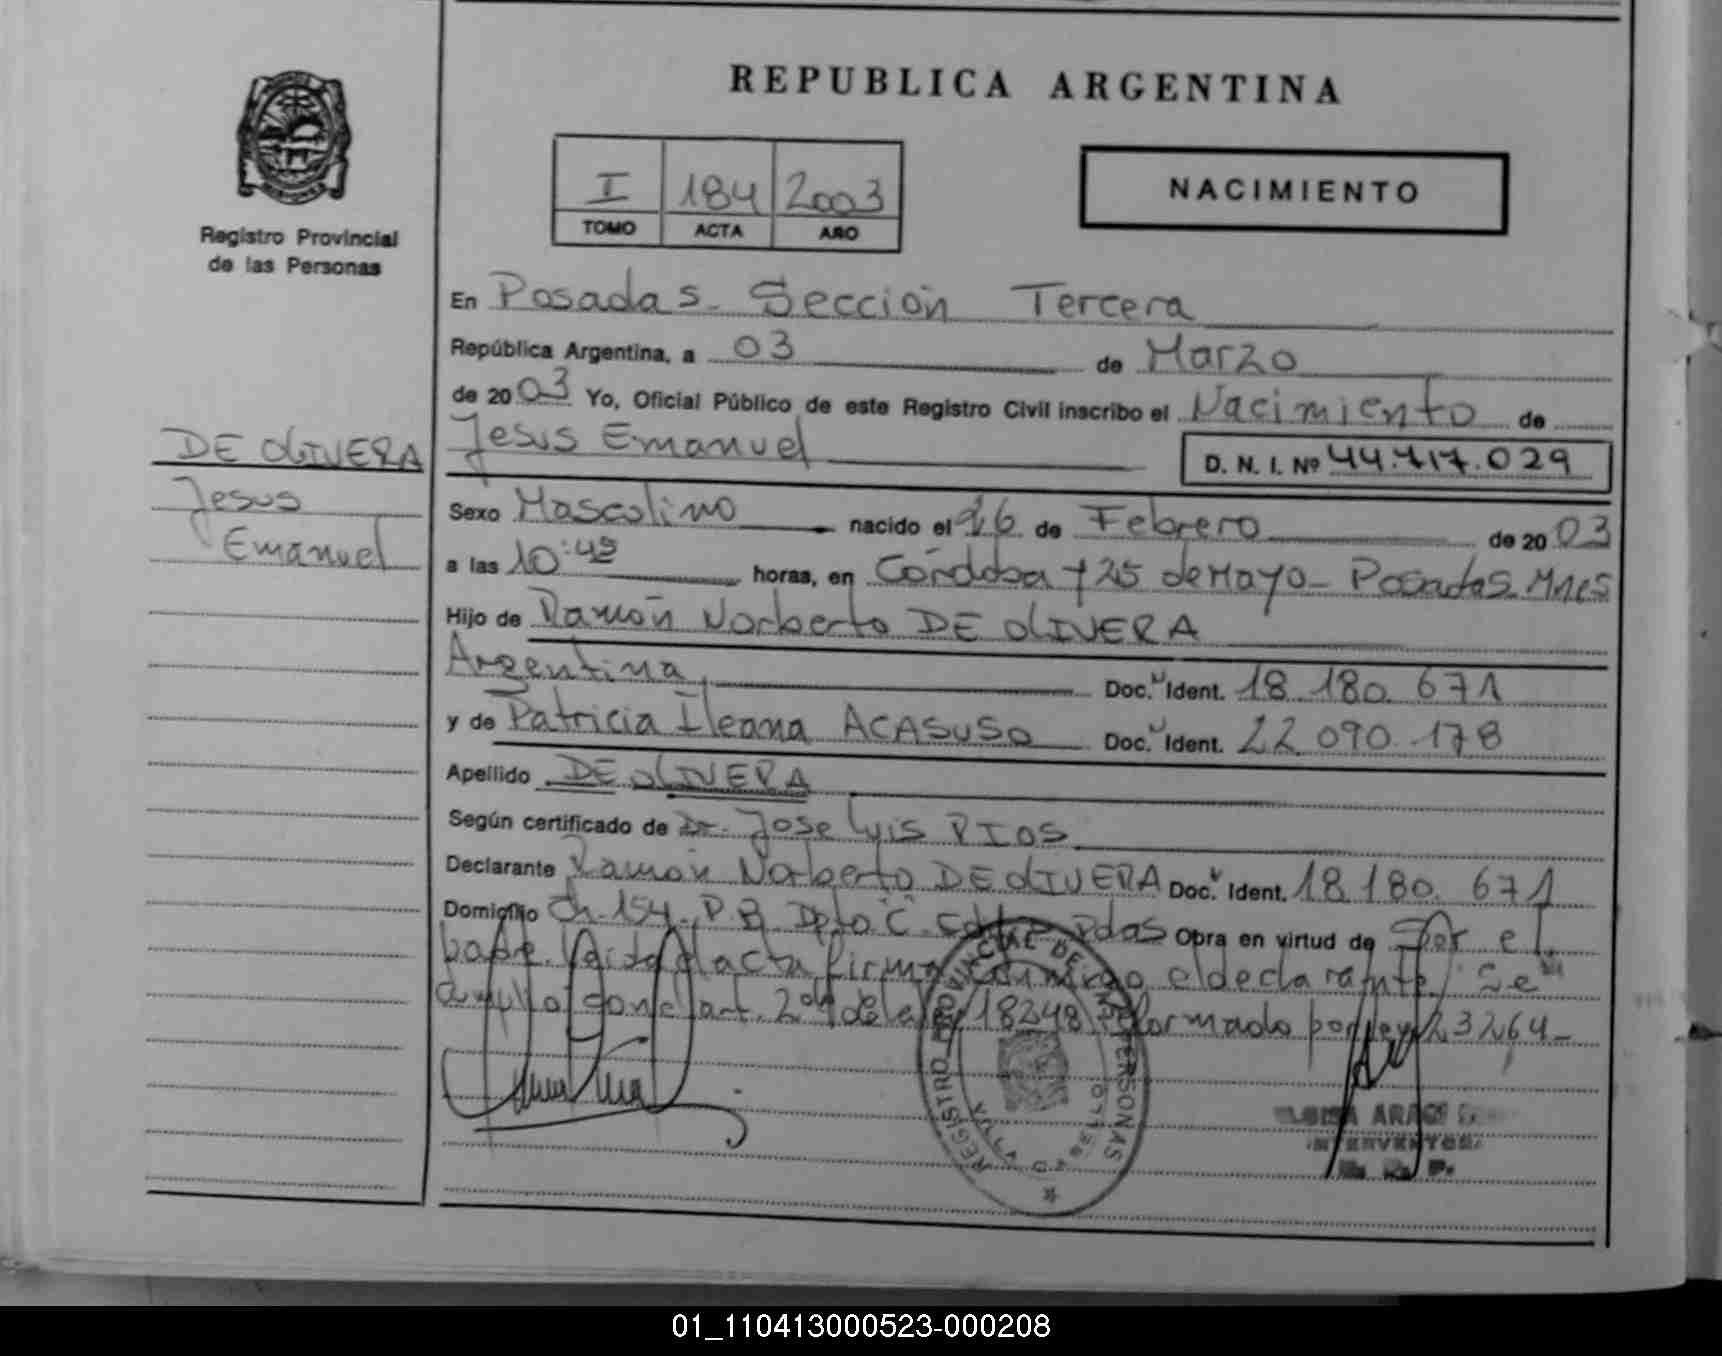 REPUBLICA ARGENTINA
Registro Provincial
de las Personas
I 184 2003
TOMO ACTA AÑO
NACIMIENTO
En Posadas - Sección Tercera
República Argentina, a 03 de Marzo
de 2003 Yo, Oficial Público de este Registro Civil inscribo el Nacimiento de
Jesus Emanuel
D. N. I. Nº 44.717.029
DE OLIVERA
Jesus
Emanuel
Sexo Masculino nacido el 26 de Febrero de 2003
a las 10:45 horas, en Córdoba y 25 de Mayo - Posadas. Mnes
Hijo de Ramón Norberto DE OLIVERA
Argentina Doc. Ident. 18.180.671
y de Patricia Ileana ACASUSO Doc. Ident. 22.090.178
Apellido DE OLIVERA
Según certificado de Dr. Jose Luis RIOS
Declarante Ramón Norberto DE OLIVERA Doc. Ident. 18.180.671
Domicilio Ch. 154. P.B. Dpto "C" Pdas Obra en virtud de Ser el
padre. Leida el acta firma conmigo el declarante. Se
cumplio con el art. 2º de la ley 18248 reformado por ley 23264-
REGISTRO PROVINCIAL DE LAS PERSONAS
INTERVENTORA
R. P.
01_110413000523-000208